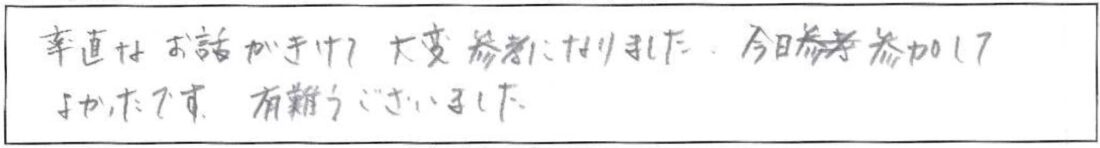 率直なお話がきけて大変参考になりました。今日参加して
よかったです。有難うございました。